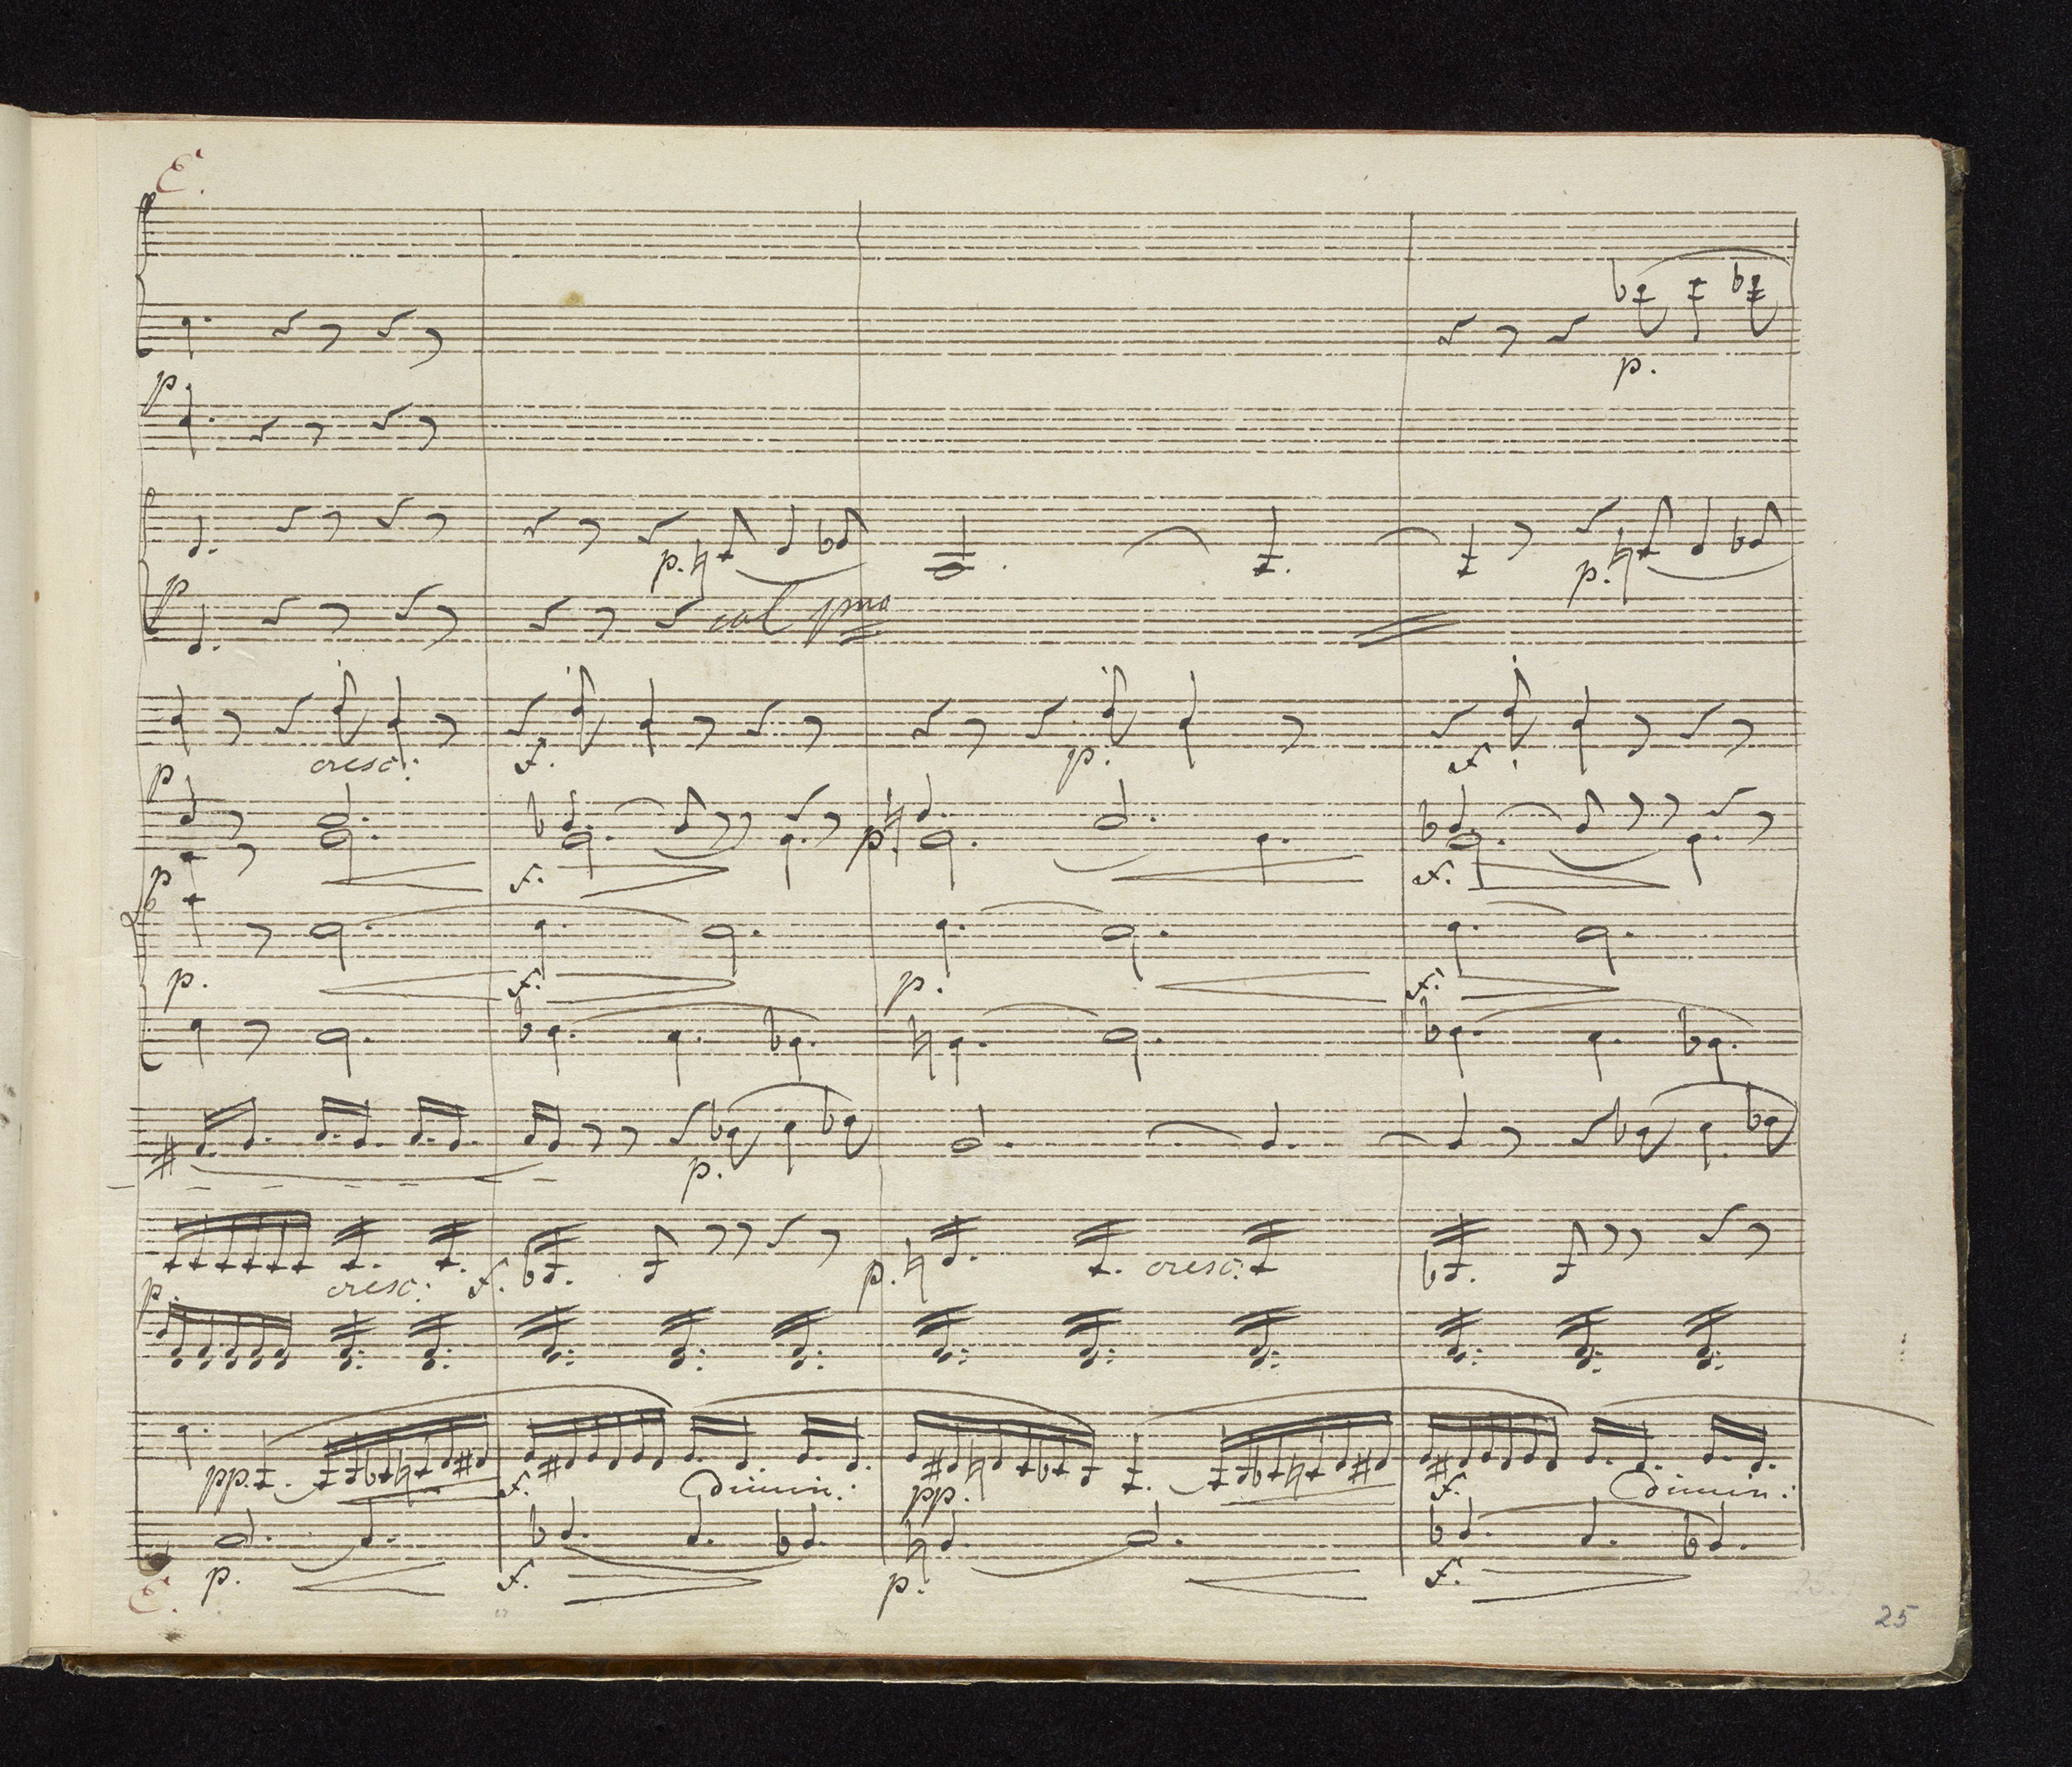 E.
p.
p.
p. p.
p col pmo
cresc: f. p. f
p
p. f. p. f.
p
p. f. p. f.
p.
cresc: f. p. cresc:
p.
pp. f. Dimin.: pp. f. Dimin.:
p. f. p. f.
E.
25